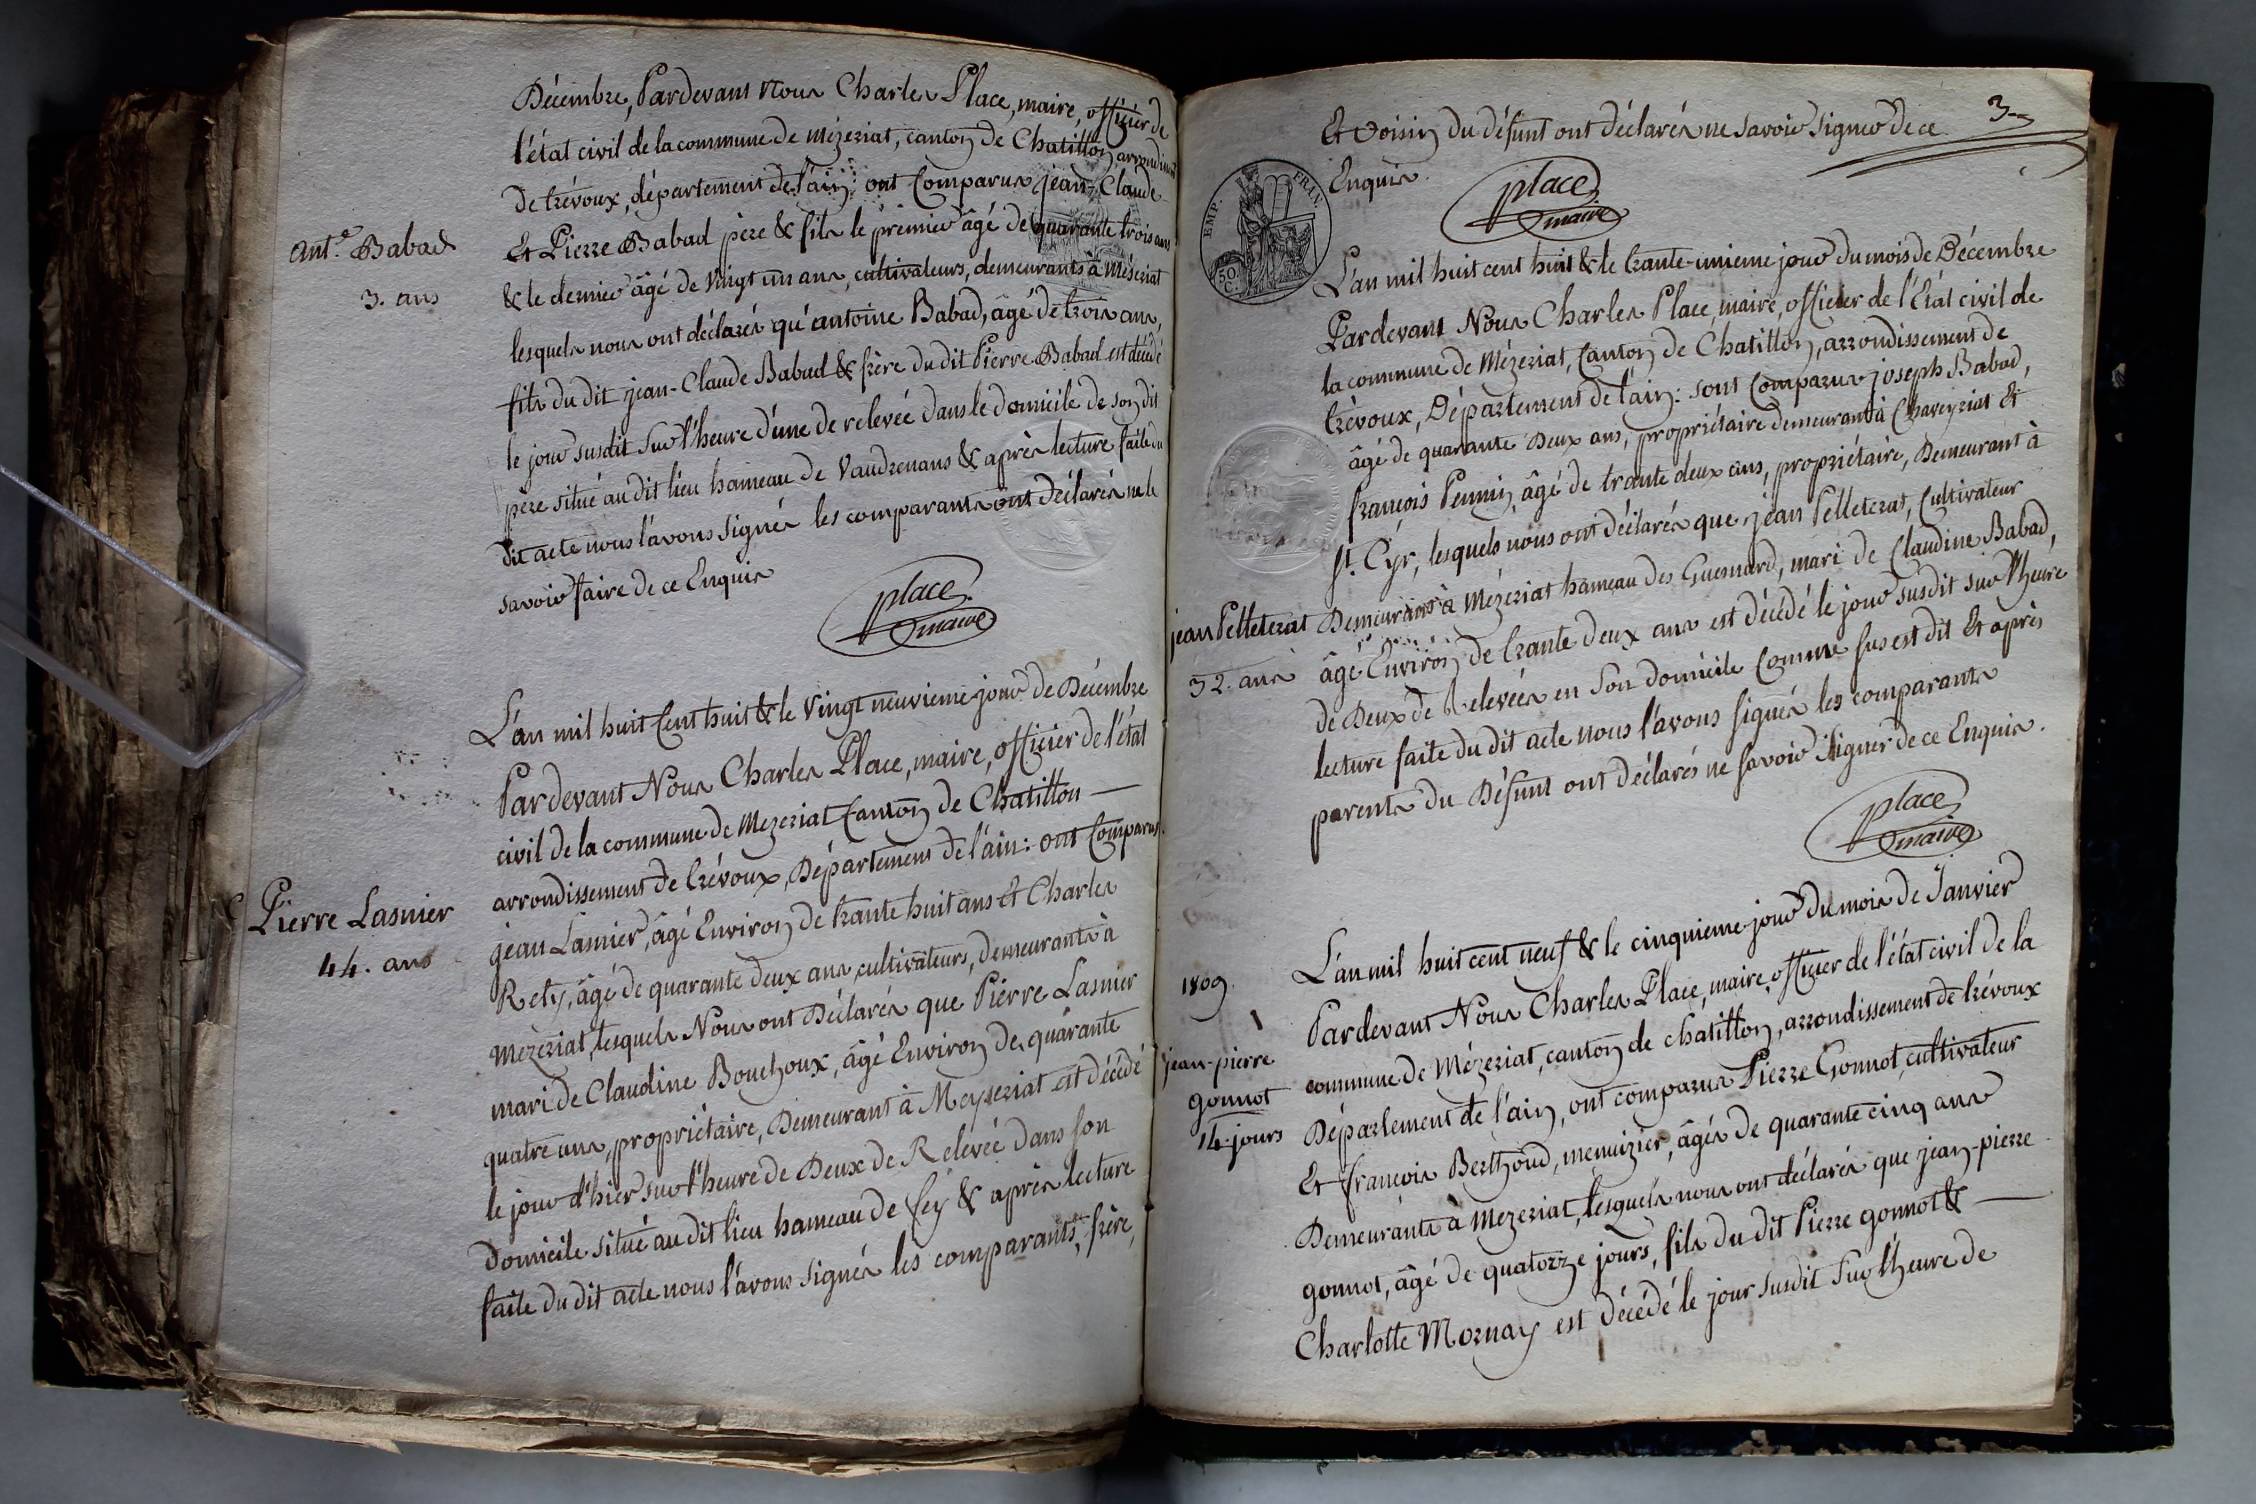 Décembre, Pardevant Nous Charles Place, maire, officier de
l'état civil de la commune de Mézeriat, canton de Chatillon, arrondissement
de trévoux, département de l'ain; ont Comparus jean-Claude
Ant.e Babad
Et Pierre Babad père & fils le prémier âgé de quarante trois ans
3. ans
& le dernier âgé de Vingt un ans, cultivateurs, demeurants à Mézeriat
lesquels nous ont déclarés qu'antoine Babad, âgé de trois ans,
fils du dit jean-Claude Babad & frère du dit Pierre Babad est décédé
le jour susdit sur l'heure d'une de relevée dans le domicile de son dit
père situé au dit lieu hameau de Vaudrenans & après lecture faite du
dit acte nous l'avons signés les comparants ont déclarés ne le
savoir faire de ce Enquis
place
maire
L'an mil huit Cent huit & le Vingt neuvieme jour de Décembre
Pardevant Nous Charles Place, maire, officier de l'état
civil de la commune de Mezeriat Canton de Chatillon
arrondissement de trévoux, Département de l'ain: ont Comparus
Pierre Lasnier
jean Lasnier, âgé Environ de trante huit ans Et Charles
44. ans
Rety, âgé de quarante deux ans, cultivateurs, demeurants à
Mézeriat, lesquels Nous ont Déclarés que Pierre Lasnier
mari de Claudine Bouchoux, âgé Environ de quarante
quatre ans, propriétaire, Demeurant à Meyseriat est décédé
le jour d'hier sur l'heure de Deux de Relevée dans son
domicile situé au dit lieu hameau de fey & après lecture
faite du dit acte nous l'avons signés les comparants, frère,
3
Et voisin du défunt ont déclarés ne savoir signer de ce
Enquis.
EMP. FRAN.
50 C.
place
maire
L'an mil huit cent huit & le trante-unieme jour du mois de Décembre
Pardevant Nous Charles Place, maire, officier de l'Etat civil de
la commune de Mézeriat, Canton de Chatillon, arrondissement de
trévoux, Département de l'ain: sont Comparus joseph Babad,
âgé de quarante Deux ans, propriétaire demeurant à Chaveyriat Et
françois Pennin, âgé de trante deux ans, propriétaire, Demeurant à
st. Cyr, lesquels nous ont déclarés que jean Pelleterat, Cultivateur
jean Pelleterat
Demeurant à Mézeriat hameau des Guesnard, mari de Claudine Babad,
32. ans
âgé Environ de trante deux ans est décédé le jour susdit sur l'heure
de Deux de Relevées en Son domicile Comme sus est dit Et après
lecture faite du dit acte nous l'avons signés les comparants
parents du Défunt ont déclarés ne savoir signer de ce Enquis.
place
maire
L'an mil huit cent neuf & le cinquieme jour du mois de Janvier
1809.
Pardevant Nous Charles Place, maire, officier de l'état civil de la
1
commune de Mézeriat, canton de chatillon, arrondissement de trévoux
jean-pierre
Département de l'ain, ont comparus Pierre Gonnot, cultivateur
gonnot
Et françois Berthoud, menuizier, âgés de quarante cinq ans
14. jours
Demeurants à Mezeriat, lesquels nous ont déclarés que jean-pierre
gonnot, âgé de quatorze jours, fils du dit Pierre gonnot &
Charlotte Mornay est décédé le jour susdit sur l'heure de